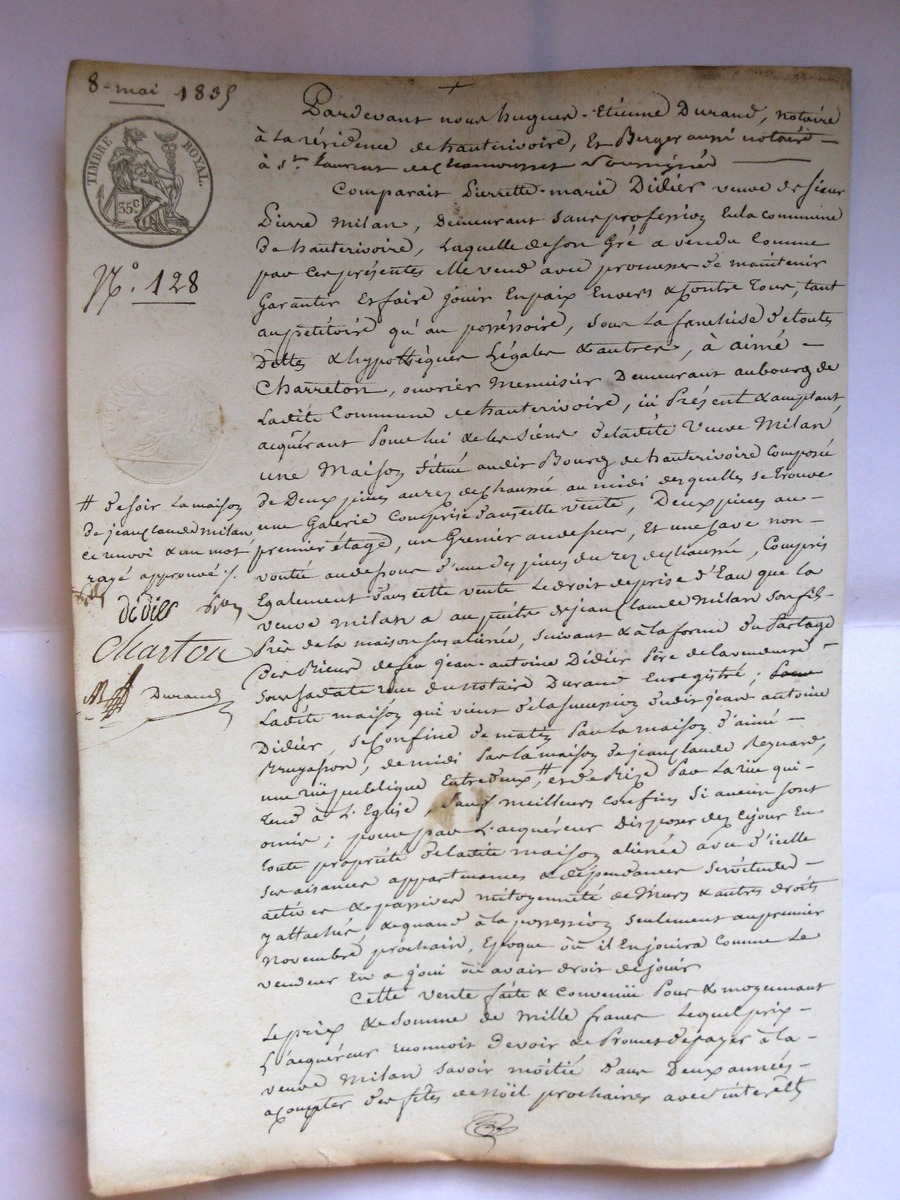 8 mai 1835
TIMBRE ROYAL.
35c
N.o 128
Pardevant nous hugues-Etienne Durand, notaire
à La résidence de hauterivoire, Et Berger aussi notaire
à St. Laurent de Chamousset Soussignés
Comparait Pierrette-marie Didier veuve de sieur
Pierre Milan, Demeurant sans profession En la commune
De hauterivoire, Laquelle de son Gré a vendu Comme
par ces présentes elle vend avec promesses de maintenir
Garantir Et faire jouir En paix Envers & Contre Tous, tant
au pétitoire qu'au posséssoire, sous La franchise de toutes
Dettes & hypothèques Légales & autres, à aimé
Charreton, ouvrier Menuisier Demeurant au bourg de
Ladite Commune de hauterivoire, ici Présent & acceptant,
acquérant Pour lui & les siens De ladite Veuve Milan
une Maison Située audit Bourg de hauterivoire Composée
de Deux pièces au rez de Chaussé au midi desquelles se trouve
une Galerie Comprise dans cette vente, Deux pièces au
premier étage, un Grenier au dessus, Et une Cave non
voutée au dessous d'une des pièces du rez de chaussée, Compris
Egalement dans cette vente Le droit de prise d'Eau que la
veuve milan a au puits de jean Claude Milan son fils
Près de la maison sus aliénée, suivant & à la forme du Partage
Des Biens de feu jean-antoine Didier Père de la venderesse
Sous sa date reçu du notaire Durand Enregistré;
Ladite maison qui vient de la succession dudit jean antoine
Didier, se Confine de matin Par la maison d'aimé
Bruyasson; de midi Par la maison de jean Claude Reynard,
une rue publique Entre deux #, et de Bize Par La rue qui
tend à L'Eglise, Sauf meilleurs confins Si aucun sont
omis; pour par L'acquéreur disposer dès ce jour En
toute propriété de ladite maison aliénée avec d'icelle
ses aisances appartenances & dépendances servitudes
actives & passives mitoyenneté de Murs & autres droits
y attachés, & quand à la possession seulement au premier
novembre prochain, Epoque où il En jouira Comme Le
vendeur En a joui où avait droit de jouir
Cette vente faite & Convenüe Pour & moyennant
Le prix & Somme de Mille francs Lequel prix
L'acquéreur reconnoit devoir & Promet de payer à la
veuve Milan savoir moitié dans Deux années
a Compter des fêtes de Nöel prochaines avec intérêts
# de soir La maison
de jean claude milan,
ce renvoi & un mot
rayé approuvé ./.
didier
Charton
Durand